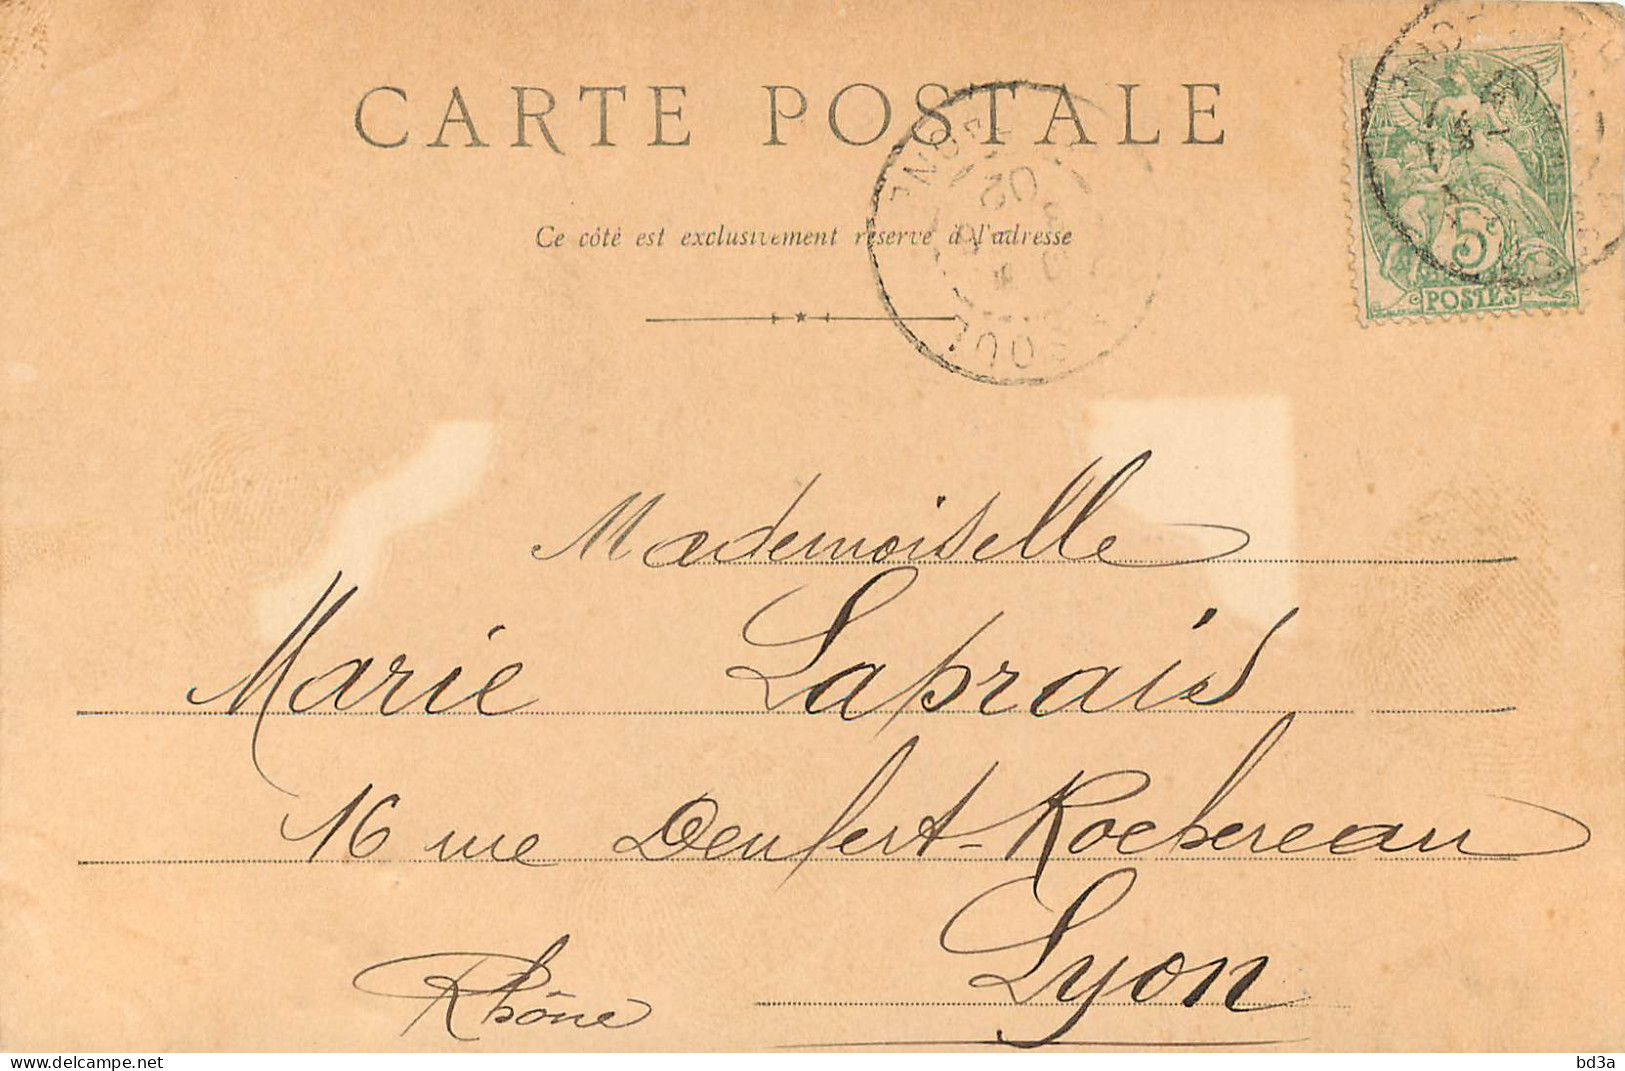 CARTE POSTALE
Ce côté est exclusivement réservé à l'adresse
02
5
POSTES
Mademoiselle
Marie Laprais
16 rue Denfert-Rochereau
Lyon
Rhône
bd3a